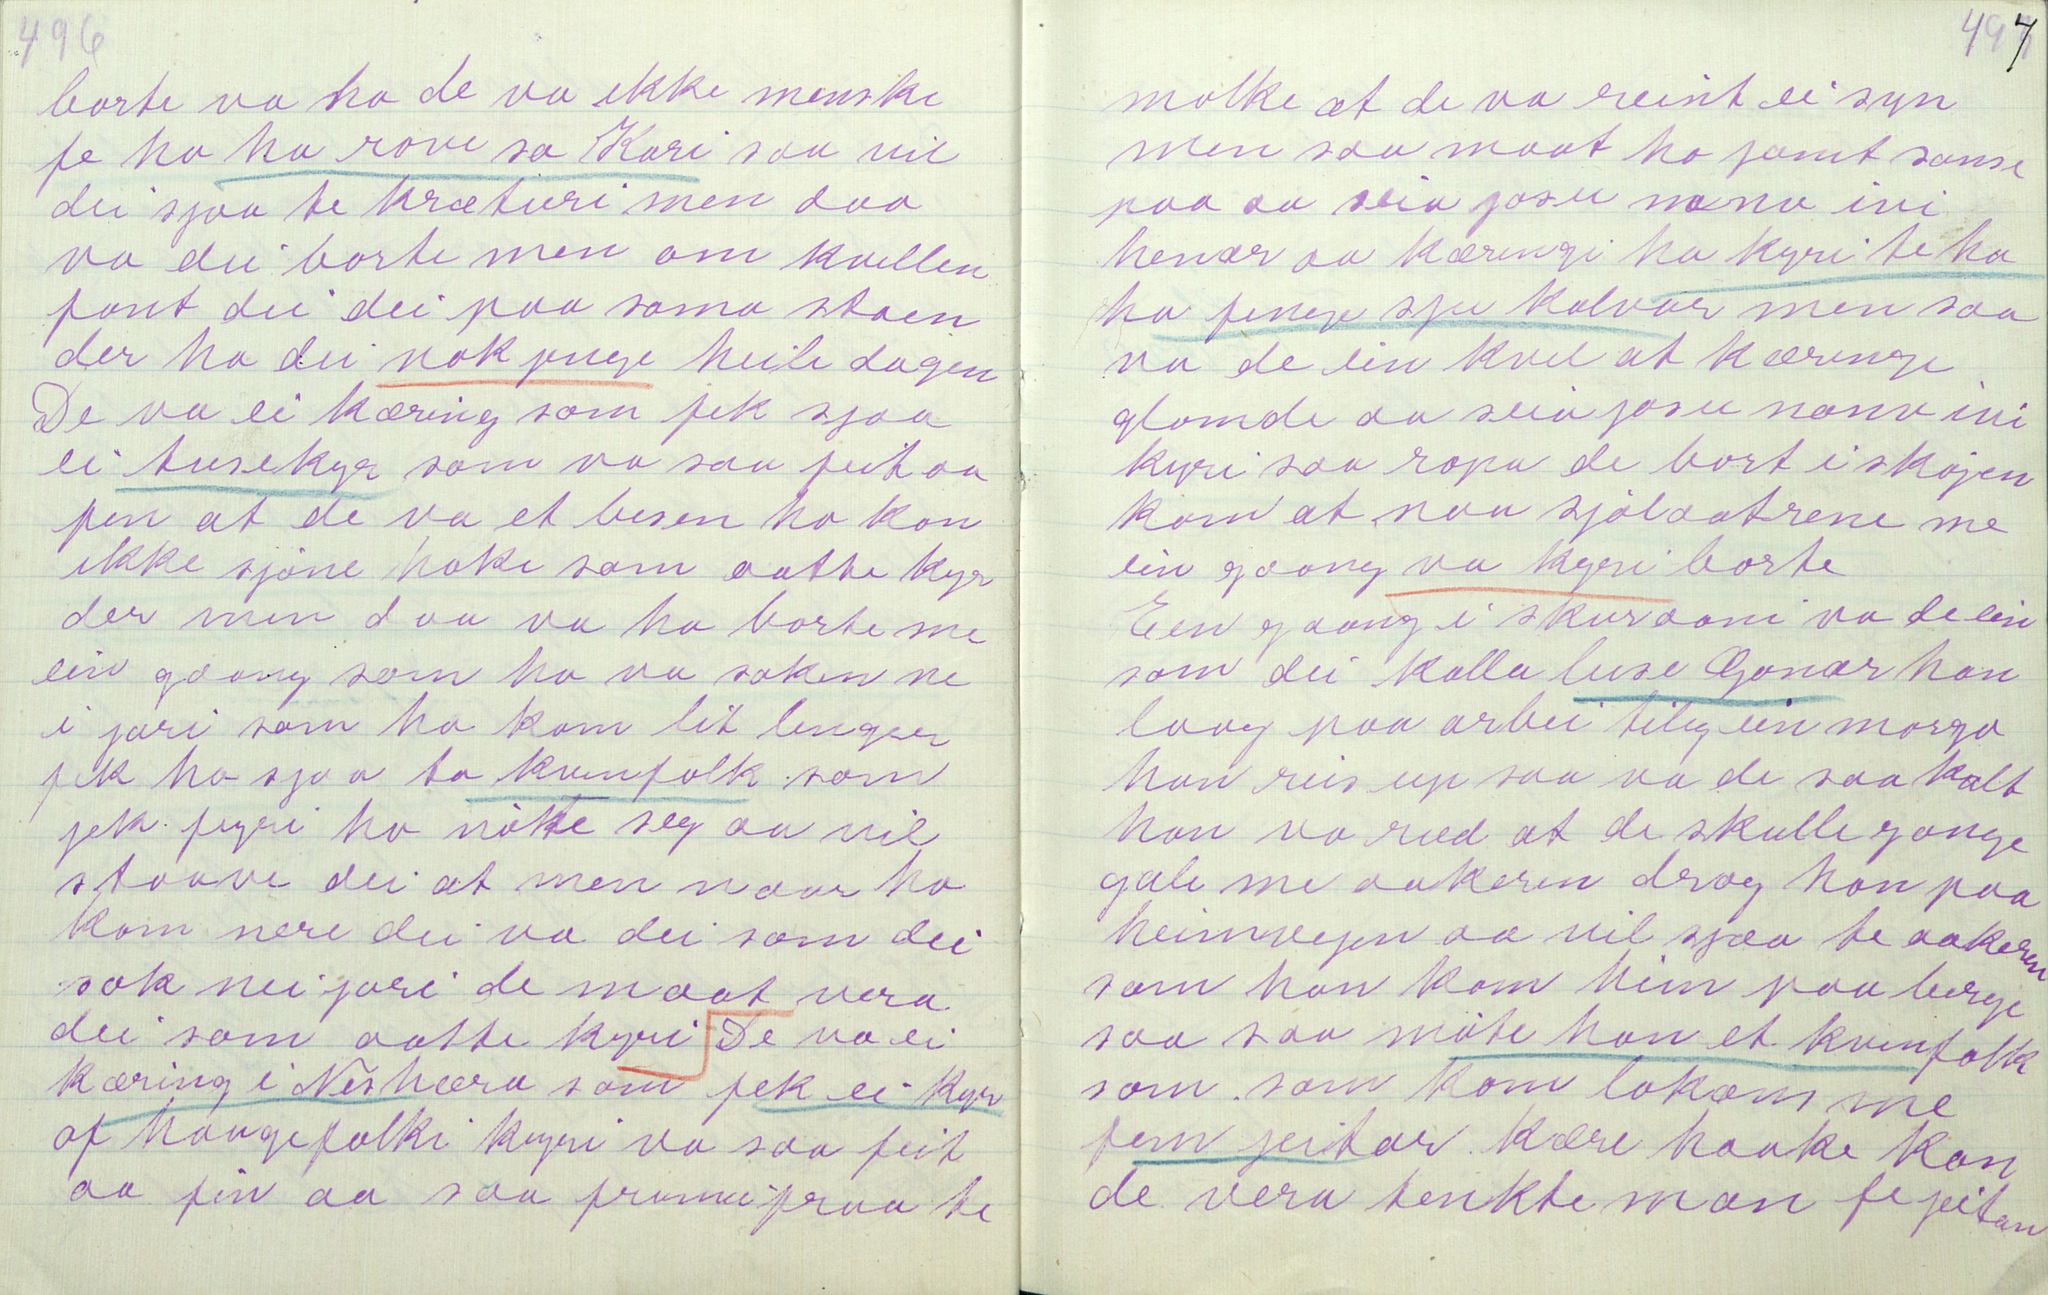 496
borte va ho de va ikke menske
fe ho ha rove sa Kari saa vil
dei sjaa te krætieri men daa
va dei borte men om kvellen
fant dei dei paa sama staen
der ha dei nok jenge heile dagen
De va ei kæring som fek sjaa
ei tusekyr som va saa feit aa
fin at de va et besen ho kon
ikke sjöne hoke som aatte kyr
der men daa va ho borte me
ein gaang som ho va soken ne
i jori som ho kom lit lenger
fek ho sjaa to kvenfolk som
jek fyri ho nötte seg aa vil
staave dei at men naar ho
kom nere dei va dei som dei
sok nei jori de maat vera
dei som aatte kyri De va ei
kæring i Neshæra som fek ei kyr
af haugefolki kyri va saa feit
aa fin aa saa frami fraa te
497
molke at de va reint ei syn
men saa maat ho jamt sanse
paa aa seia josu nana ivi
henær aa kæringi ha kyri te ho
ha fenge sju kalvar men saa
va de ein kvel at kæringe
glömde aa seia josu nana ivi
kyri saa ropa de bort i skogen
kom at naa sjölaatrene me
ein gaang va kyri borte
Een gaang i skuraani va de ein
som dei kalla luse Gonar han
laag paa arbei tileg ein morgo
han reis up saa va de saa kalt
han va red at de skulle gange
gale me aakeren drog han paa
heimvegen aa vil sjaa te aakeren
som han kom heim paa berge
saa saa möte han et kvenfolk
som som kom lokæns me
fem jeitar kære haake kan
de vera tenkte man fe jeitan